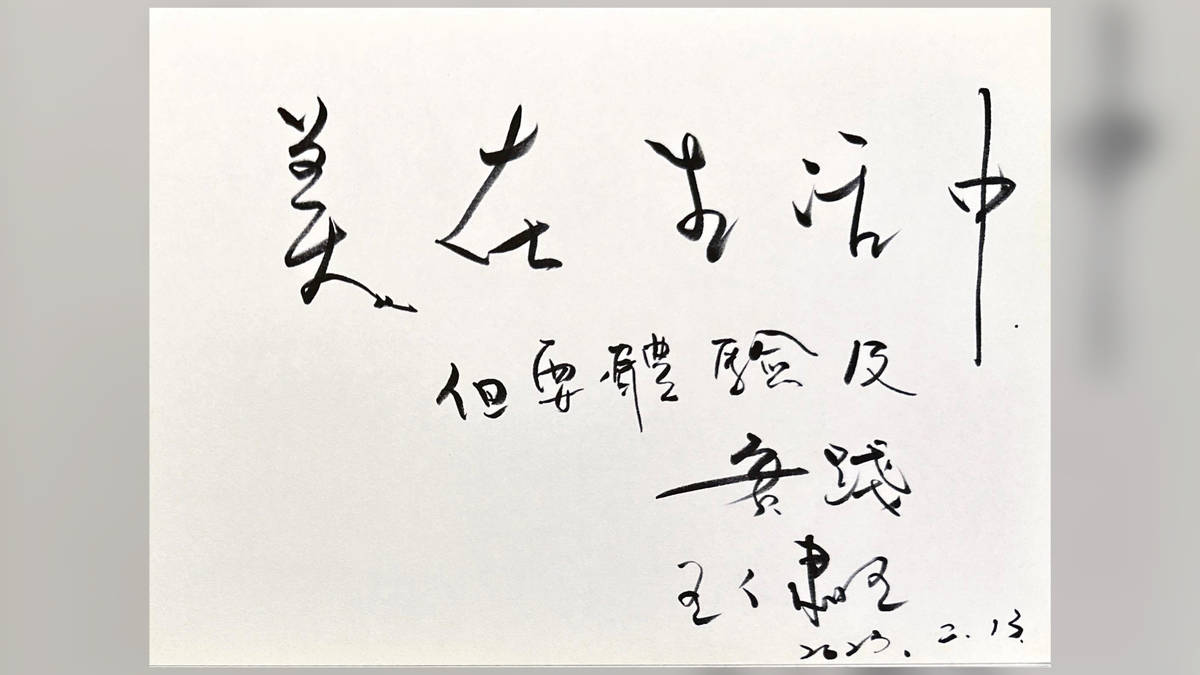 美在生活中
但要體驗及
實踐
王
2023.2.13.